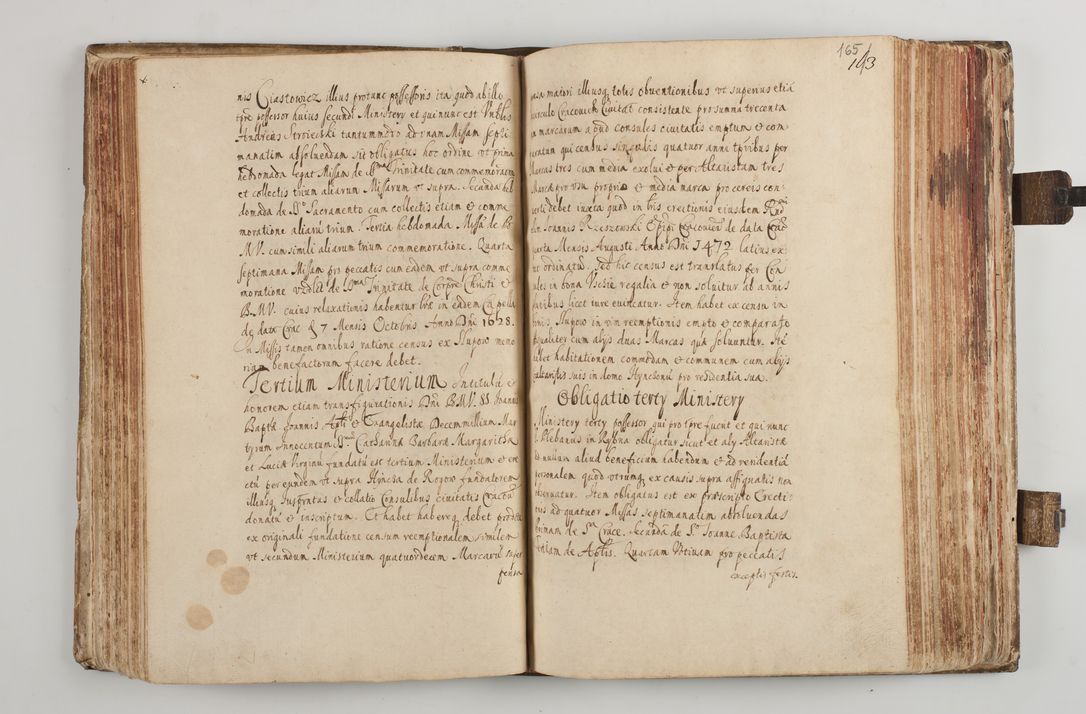 nis Ciastowicz illius protunc possessoris ita quod ab illo
tpre possessor huius secundi Ministery et qui nunc est Vnblis
Andreas Stroiecki tantummodo ad vnam Missam septi
manatim absoluendam sit obligatus hoc ordine vt prima
hebdomada legat Missam de SSma Trinitate cum commemoraone
et collectis trium aliarum Missarum vt supra. Secunda heb
domada de SSo Sacramento cum collectis etiam et comme
moratione aliaru trium. Tertia hebdomada Missa de B
M.V. cum simili aliarum trium commemoratione. Quarta
septimana Missam pro peccatis cum eadem vt supra comme
moratione vdlit de SSma Trinitate de Corpre Christi et
B.M.V. cuius relaxationis habentur lræ in eadem Capella
de data Crac 7 Mensis Octobris Anno Dni 1628.
In Missis tamen omnibus ratione census ex Slupow memo
riam benefactorum facere debet.
Tertium Ministerium Intitulu et
honorem etiam transfigurationis Dni B.M.V. SS Joannis
Baptæ Joannis Apli et Euangelistæ Decem millium Mar
tyrum Innocentum SSrum Catharinæ Barbaræ Margarithæ
et Luciæ Virginu fundatu est tertium Ministerium et ere
ctu per eundem vt supra Hincza de Rogow fundatorem
illiusq Juspatntus et collatio Consulibus ciuitatis Cracou
donatu et inscriptum. Et habet habereq debet prædte
ex originali fundatione censum reemptionalem similem
vt secundum Ministerium quatuordecem Marcaru super
pensa
165
193
x
nasa maiori illiusq totis obuentionibus vt superius etia
Cracouien Ciuitat consistente pro summa trecenta
marcarum apud consules ciuitatis emptum et com
paratum qui census singulis quatuor anni tpribus per
Marcas tres cum media exolui et per Altaristam tres
Marcæ pro vsu proprio et media marca pro cereis con
uerti debet iuxta quod in lris erectionis eiusdem Rmi
olim Joannis Rzeszowski Eppi Cracouien de data Crac
quarta Mensis Augusti Anno Dni 1472 latius ex
ordinatu. Sed hic census est translatus per Con
sules in bona Vscie regalia et non soluitur ab annis
pluribus licet iure euincatur. Item habet ex censu in
bonis Slupow in vim reemptionis empto et comparato
æqualiter cum alys duas Marcas quæ soluuntur. Ite
habet habitationem commodam et communem cum alys
altaristis suis in domo Hynczoni pro residentia sua.
Obligatio terty Ministery
Ministery terty possessor qui pro tpre fuerit et qui nunc
Plebanus in Rybna obligatur sicut et aly Altaristæ
ad nullum aliud beneficium habendum et ad residentia
personalem quod vtrumq ex causis supra assignatis non
obseruatur. Item obligatus est ex præscripto Erectio
nis ad quatuor Missas septimanatim absoluendas
primam de Sta Cruce. Secunda de So Joanne Baptista
Tertiam de Aplis. Quartam Votiuam pro peccatis
exceptis festis.